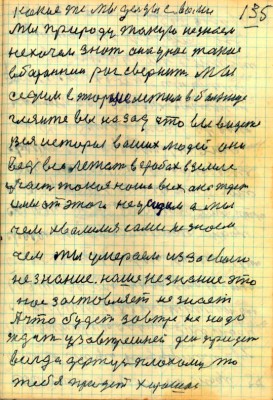 135
какие же мы друзья с вами
мы природу такую не знаем
не хочем знать она нас такие
в бараний рог свернить мы
сидим в тюрьме лежим в больнице
гляньте вы назад что вы видите
вся история ваших людей они
ведь все лежат в гробах в земле
участь такая наша всех она ждет
мы от этого не уйдем а мы
чем хвалимся сами не знаем
чем мы умераем из за своего
незнание. наше незнание это
нас заставляет не знать
А что будет завтре не надо
ждать узавтрешний день придет
всегда держись плохому то
тебе придет хорошее